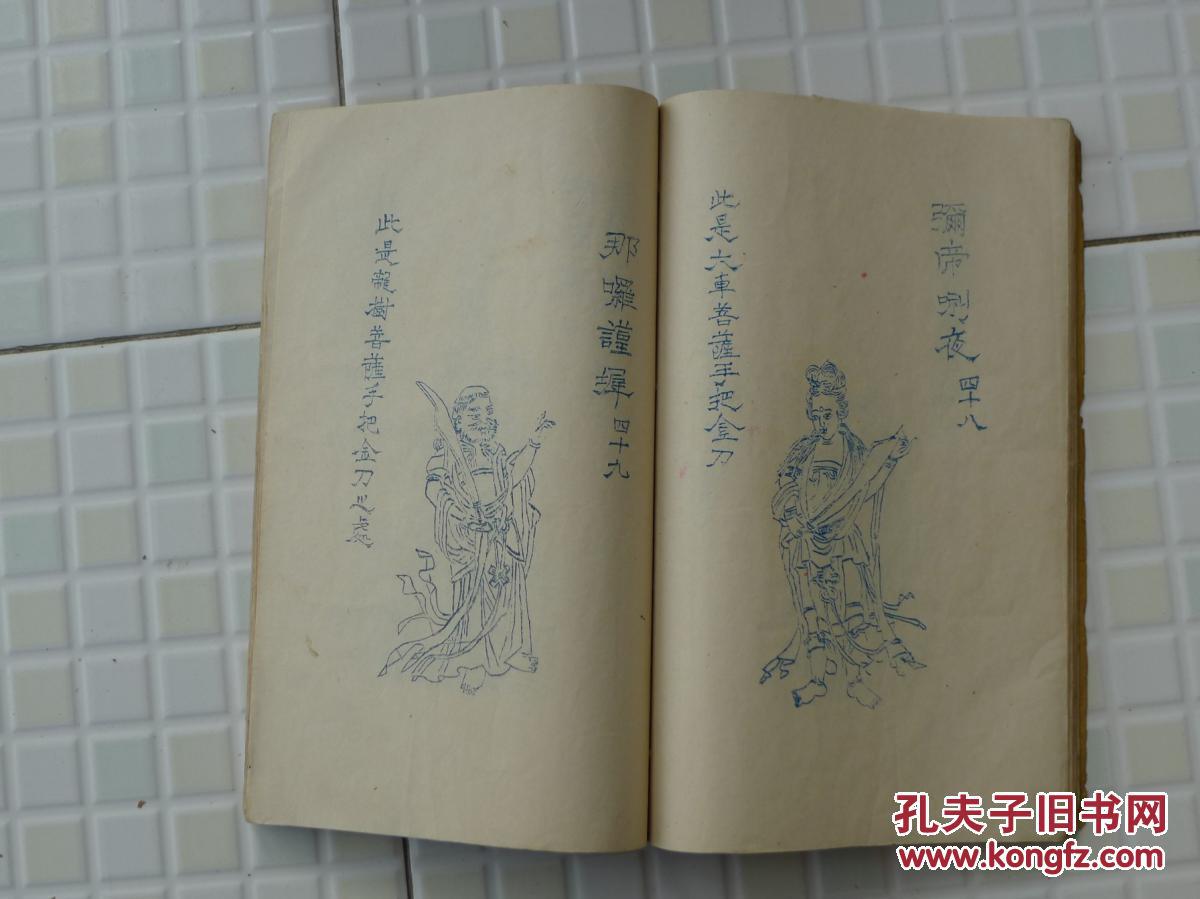 彌帝唎夜 四十八
此是大車菩薩手把金刀
那囉謹墀 四十九
此是龍樹菩薩手把金刀之處
孔夫子旧书网
www.kongfz.com